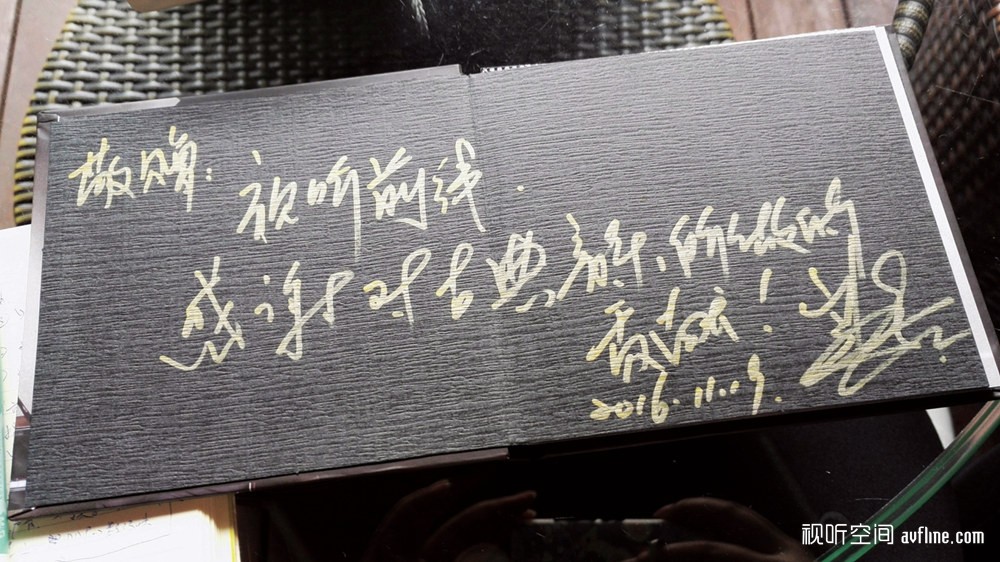 敬赠：
视听前线.
感谢对古典音乐所做的
2016.11.19.
视听空间 avfline.com